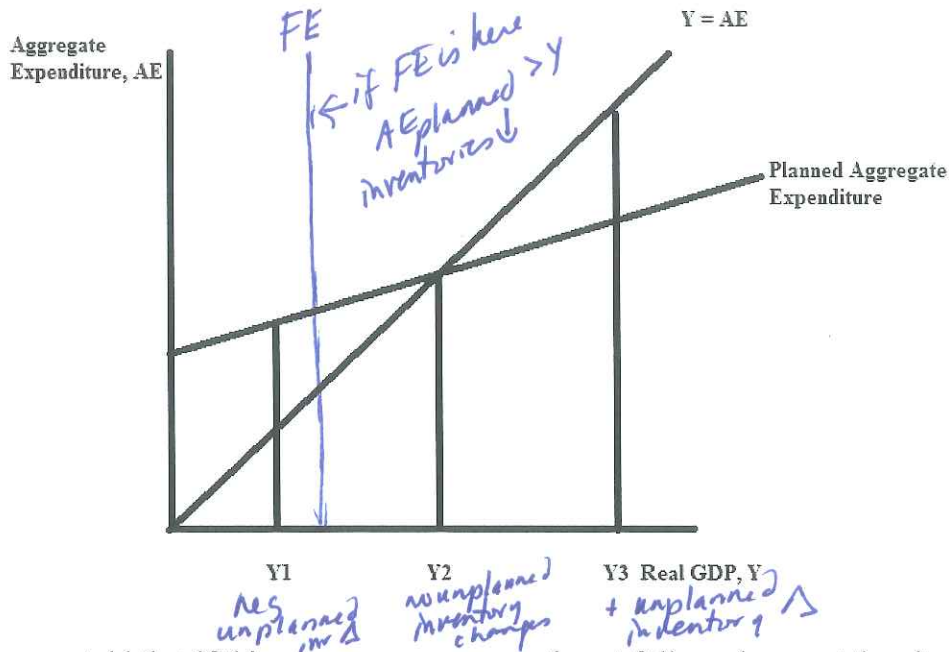 FE
Y = AE
Aggregate
Expenditure, AE
← if FE is here
AE planned > Y
inventories ↓
Planned Aggregate
Expenditure
Y1
Y2
Y3 Real GDP, Y
neg
unplanned
inv Δ
no unplanned
inventory
changes
+ unplanned Δ
inventory